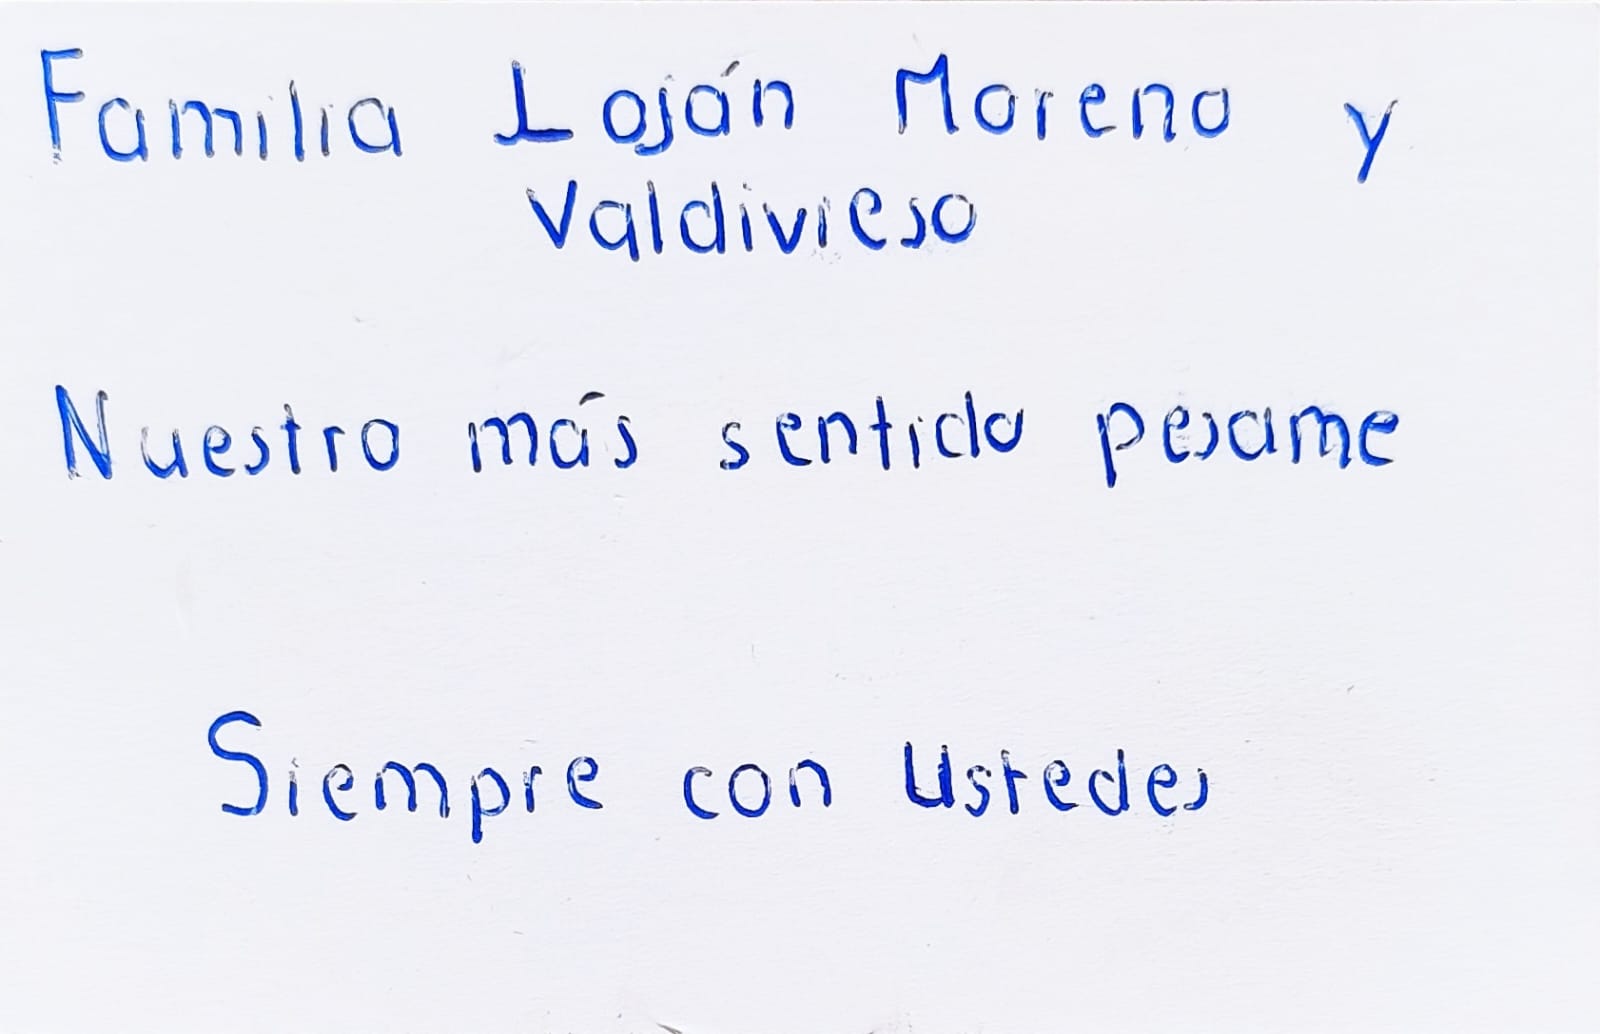 Familia Loján Moreno y
Valdivieso
Nuestro más sentido pesame
Siempre con Ustedes